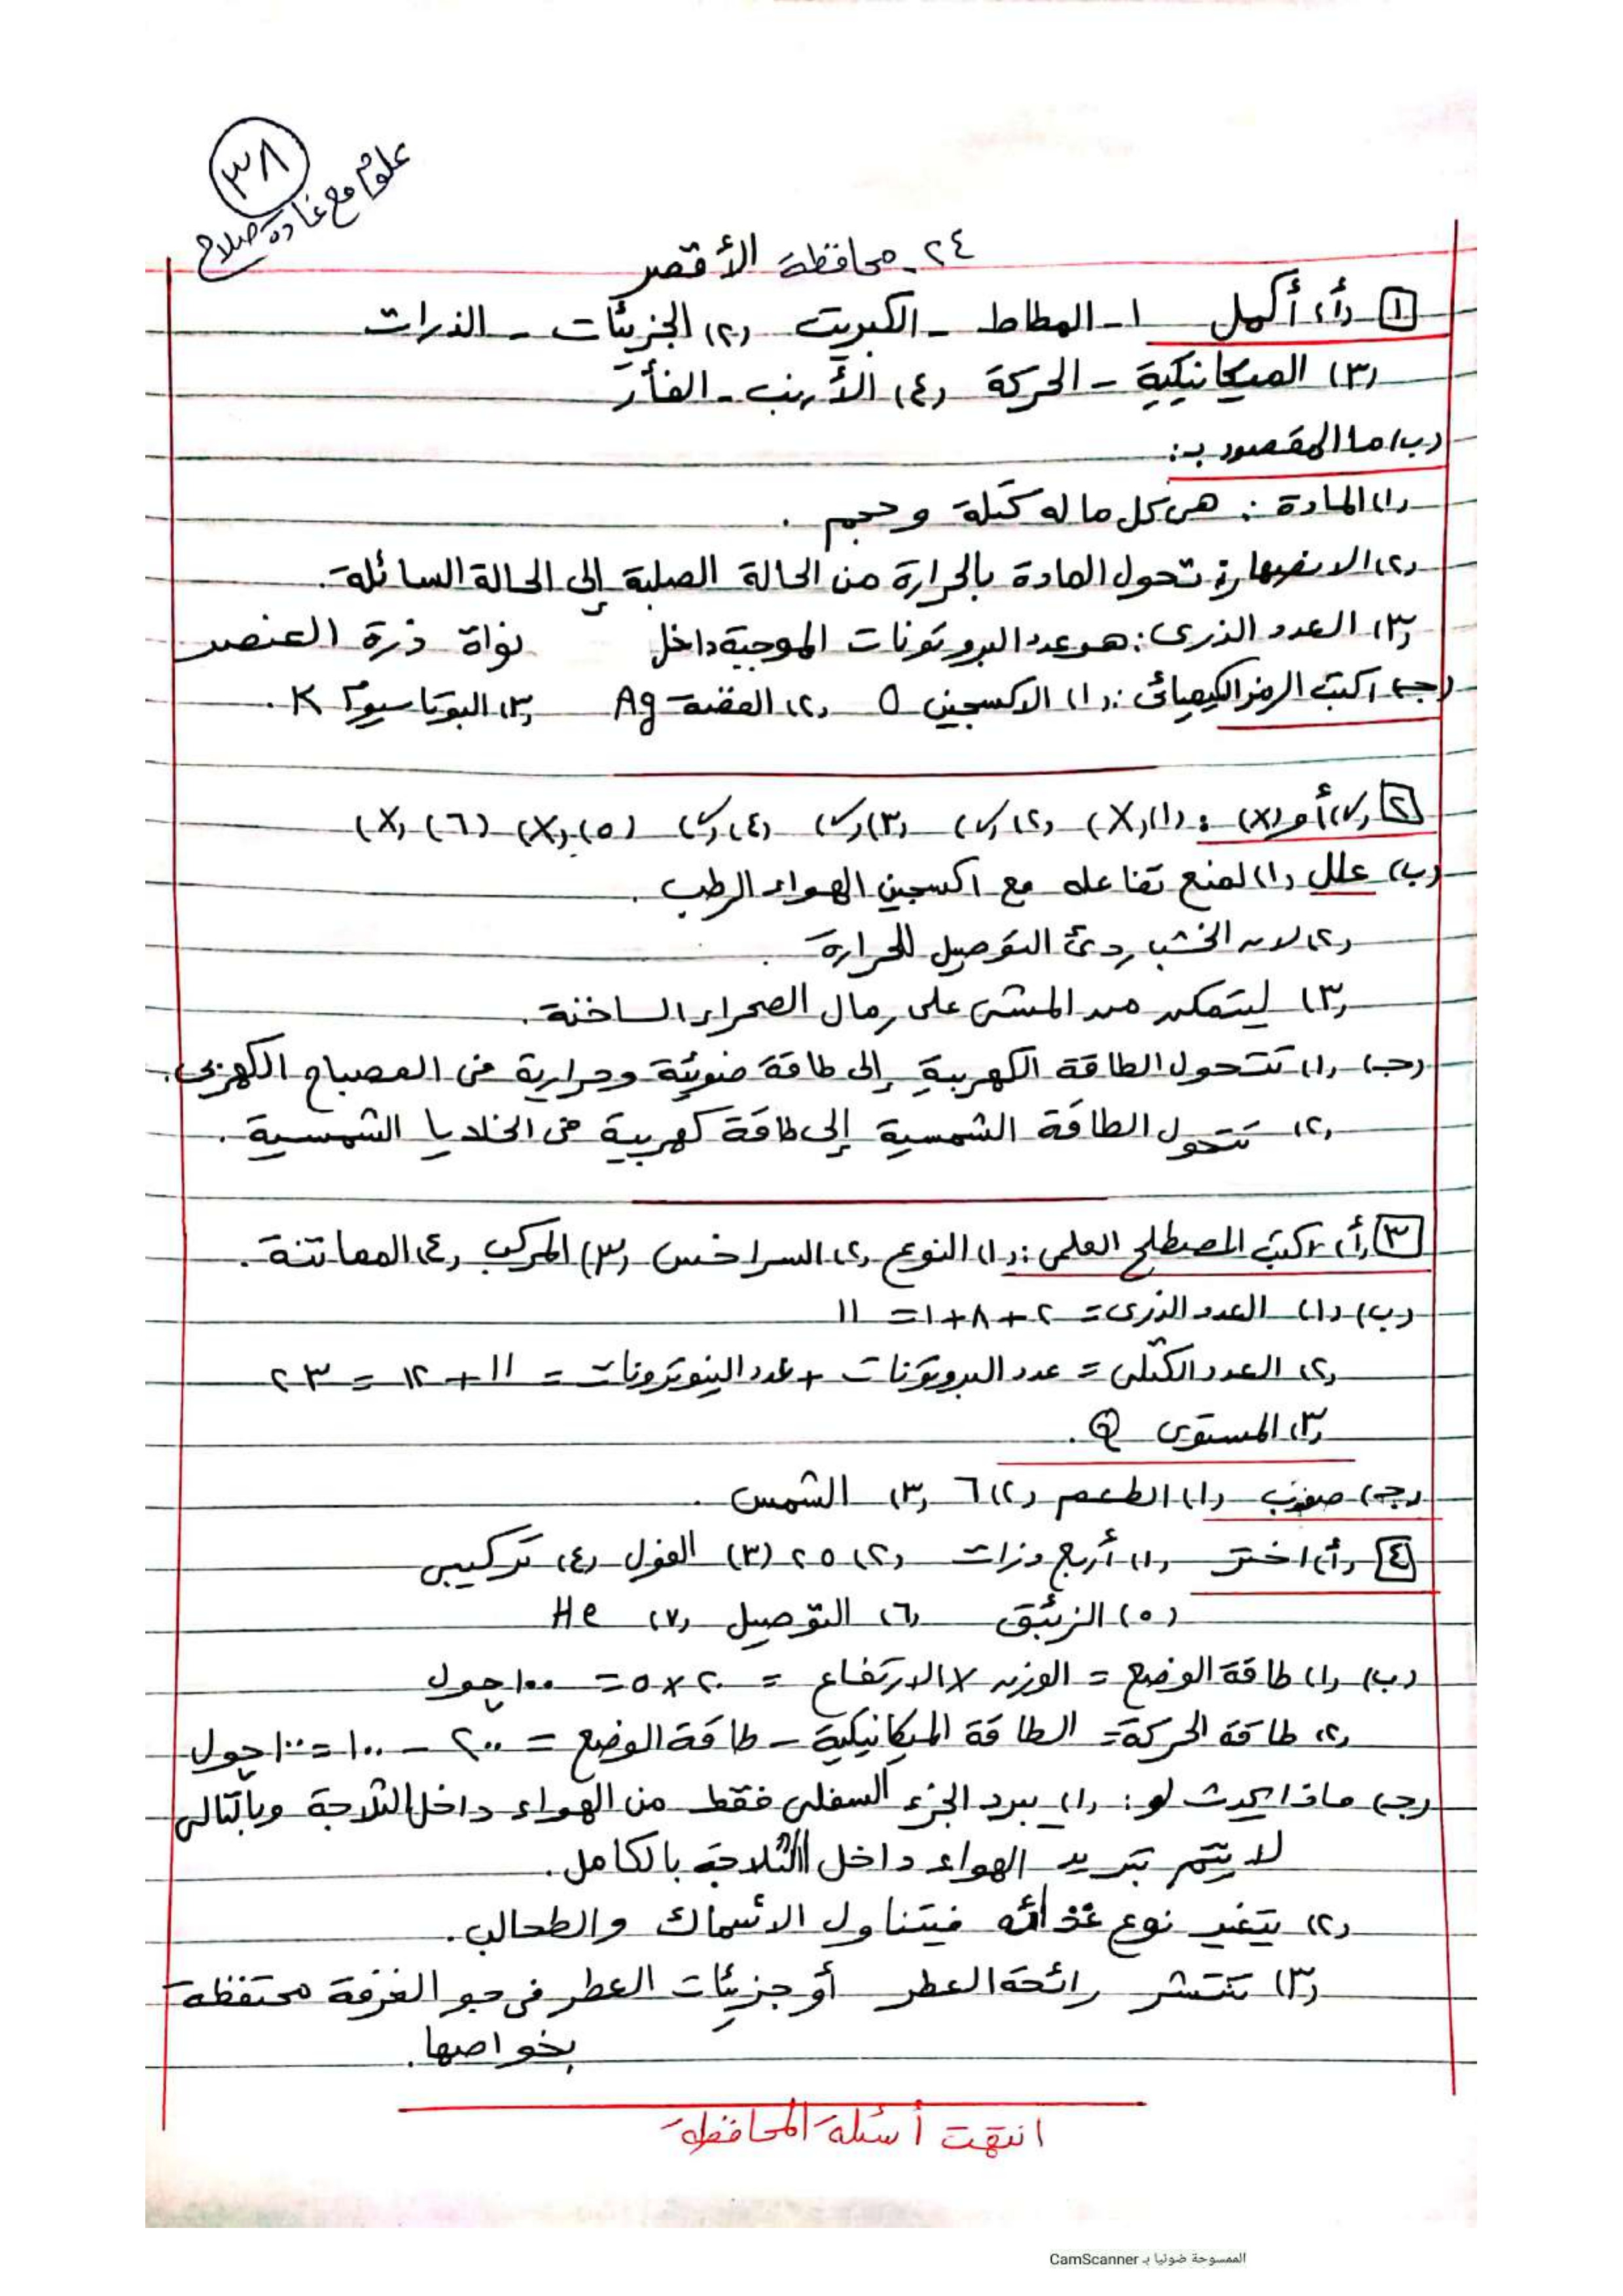 ٣٨
علوم مع غادة صلاح
٢٤ـ محافظة الأقصر
١ (أ) أكمل ١ـ المطاط ـ الكبريت (٢) الجزيئات ـ الذرات
(٣) الميكانيكية ـ الحركة (٤) الأرنب ـ الفأر
(ب) ما المقصود بـ:
(١) المادة : هى كل ما له كتلة وحجم .
(٢) الانصهار: تحول المادة بالحرارة من الحالة الصلبة إلى الحالة السائلة.
(٣) العدد الذرى: هو عدد البروتونات الموجبة داخل نواة ذرة العنصر
(جـ) اكتب الرمز الكيميائى: (١) الاكسجين O (٢) الفضة Ag (٣) البوتاسيوم K .
٢ (✓) أو (X) : (١) (X) (٢) (✓) (٣) (✓) (٤) (✓) (٥) (X) (٦) (X)
(ب) علل (١) لمنع تفاعله مع اكسجين الهواء الرطب .
(٢) لان الخشب ردئ التوصيل للحرارة .
(٣) ليتمكن من المشى على رمال الصحراء الساخنة .
(جـ) (١) تتحول الطاقة الكهربية إلى طاقة ضوئية وحرارية فى المصباح الكهربى.
(٢) تتحول الطاقة الشمسية إلى طاقة كهربية فى الخلايا الشمسية .
٣ (أ) اكتب المصطلح العلمى: (١) النوع (٢) السراخس (٣) المركب (٤) المماتنة .
(ب) (١) العدد الذرى = ٢ + ٨ + ١ = ١١
(٢) العدد الكتلى = عدد البروتونات + عدد النيوترونات = ١١ + ١٢ = ٢٣
(٣) المستوى Q .
(جـ) صوب (١) الطعم (٢) ٦ (٣) الشمس .
٤ (أ) اختر (١) أربع ذرات (٢) ٢٥ (٣) الفول (٤) تركيبى
(٥) الزئبق (٦) التوصيل (٧) He
(ب) (١) طاقة الوضع = الوزن X الارتفاع = ٢٠ × ٥ = ١٠٠ جول
(٢) طاقة الحركة = الطاقة الميكانيكية – طاقة الوضع = ٢٠٠ – ١٠٠ = ١٠٠ جول
(جـ) ماذا يحدث لو: (١) يبرد الجزء السفلى فقط من الهواء داخل الثلاجة وبالتالى
لا يتم تبريد الهواء داخل الثلاجة بالكامل .
(٢) يتغير نوع غذائه فيتناول الأسماك والطحالب .
(٣) تنتشر رائحة العطر أو جزيئات العطر فى جو الغرفة محتفظة
بخواصها .
انتهت أسئلة المحافظة
الممسوحة ضوئيا بـ CamScanner